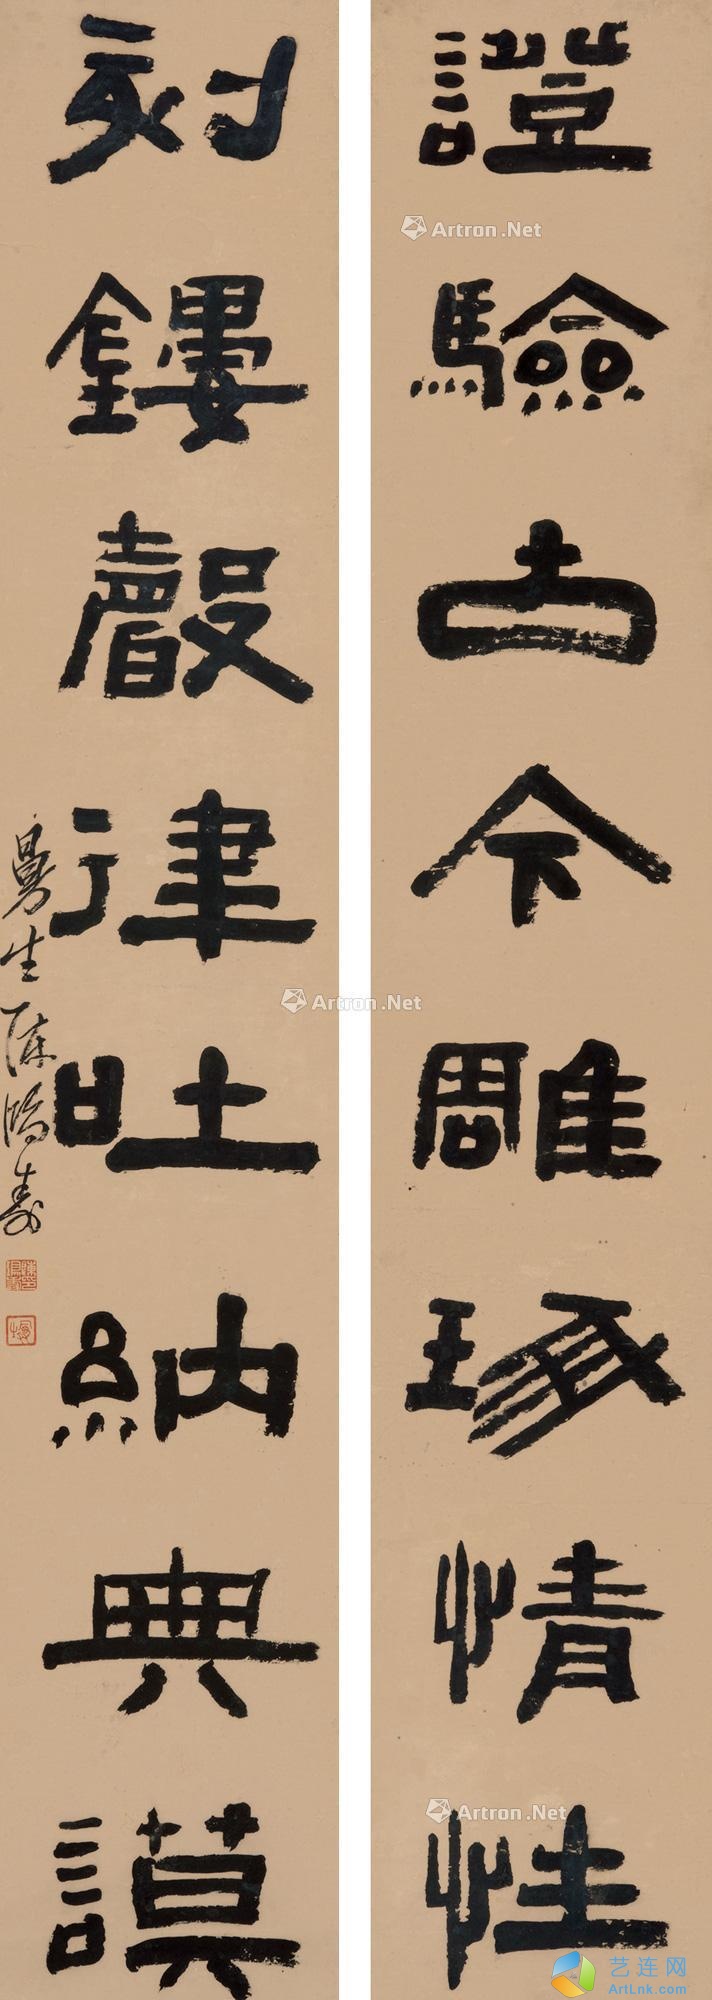 證驗古今雕琢情性
刻鏤聲律吐納典謨
曼生陳鴻壽
Artron.Net
Artron.Net
Artron.Net
艺连网
ArtLnk.com